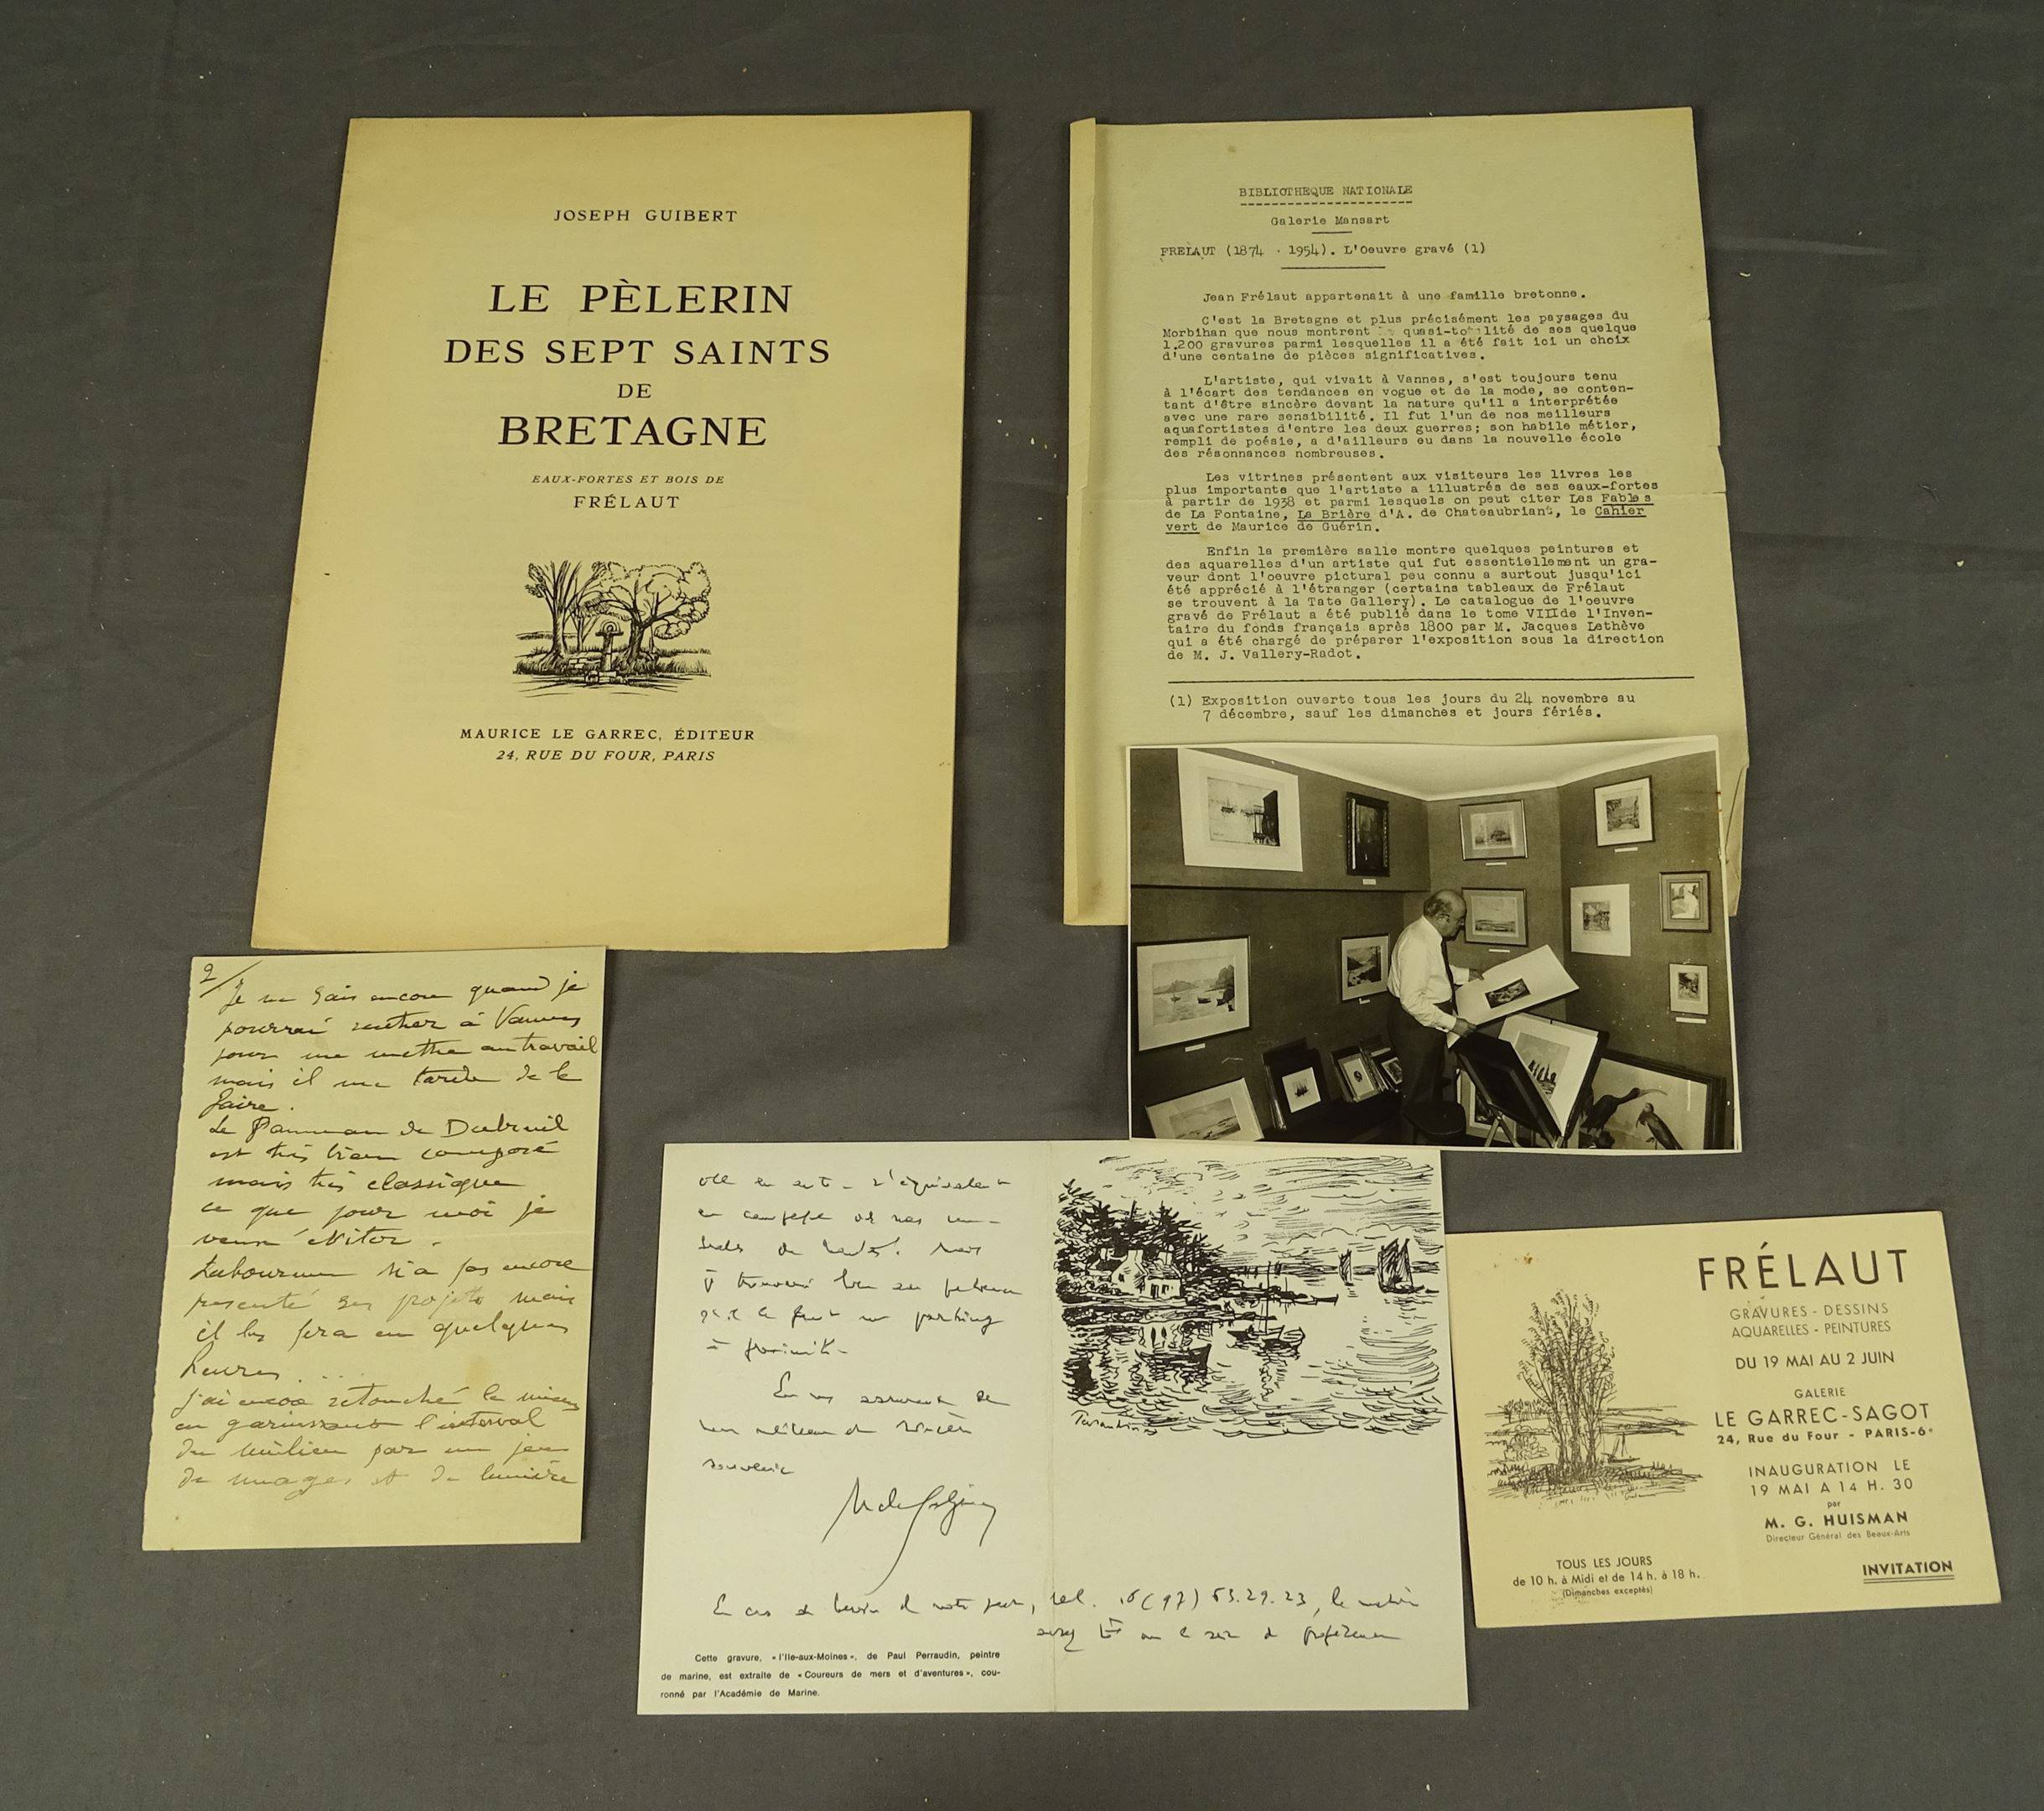 JOSEPH GUIBERT
LE PÈLERIN
DES SEPT SAINTS
DE
BRETAGNE
EAUX-FORTES ET BOIS DE
FRÉLAUT
MAURICE LE GARREC, ÉDITEUR
24, RUE DU FOUR, PARIS
BIBLIOTHEQUE NATIONALE
Galerie Mansart
FRELAUT (1874 - 1954). L'Oeuvre gravé (1)
Jean Frélaut appartenait à une famille bretonne.
C'est la Bretagne et plus précisément les paysages du
Morbihan que nous montrent quasi-totalité de ses quelque
1.200 gravures parmi lesquelles il a été fait ici un choix
d'une centaine de pièces significatives.
L'artiste, qui vivait à Vannes, s'est toujours tenu
à l'écart des tendances en vogue et de la mode, se conten-
tant d'être sincère devant la nature qu'il a interprétée
avec une rare sensibilité. Il fut l'un de nos meilleurs
aquafortistes d'entre les deux guerres; son habile métier,
rempli de poésie, a d'ailleurs eu dans la nouvelle école
des résonnances nombreuses.
Les vitrines présentent aux visiteurs les livres les
plus importants que l'artiste a illustrés de ses eaux-fortes
à partir de 1938 et parmi lesquels on peut citer Les Fables
de La Fontaine, La Brière d'A. de Chateaubriant, le Cahier
vert de Maurice de Guérin.
Enfin la première salle montre quelques peintures et
des aquarelles d'un artiste qui fut essentiellement un gra-
veur dont l'oeuvre pictural peu connu a surtout jusqu'ici
été apprécié à l'étranger (certains tableaux de Frélaut
se trouvent à la Tate Gallery). Le catalogue de l'oeuvre
gravé de Frélaut a été publié dans le tome VIII de l'Inven-
taire du fonds français après 1800 par M. Jacques Lethève
qui a été chargé de préparer l'exposition sous la direction
de M. J. Vallery-Radot.
(1) Exposition ouverte tous les jours du 24 novembre au
7 décembre, sauf les dimanches et jours fériés.
2/
Je ne sais encore quand je
pourrai rentrer à Vannes
pour me mettre au travail
mais il me tarde de le
faire.
Le Panneau de Dubreuil
est très bien composé
mais très classique
ce que pour moi je
veux éviter.
Laboureur n'a pas encore
présenté ses projets mais
il les fera en quelques
heures....
j'ai encore retouché le mien
en garnissant l'interval
du milieu par un jeu
de nuages et de lumière
parking
à proximité.
En vous assurant de
souvenir
En cas de besoin de notre part, tel. 16 (97) 63.29.23, le matin
Cette gravure, « l'Ile-aux-Moines », de Paul Perraudin, peintre
de marine, est extraite de « Coureurs de mers et d'aventures », cou-
ronné par l'Académie de Marine.
Perraudin
FRÉLAUT
GRAVURES - DESSINS
AQUARELLES - PEINTURES
DU 19 MAI AU 2 JUIN
GALERIE
LE GARREC-SAGOT
24, Rue du Four - PARIS-6e
INAUGURATION LE
19 MAI A 14 H. 30
par
M. G. HUISMAN
Directeur Général des Beaux-Arts
INVITATION
TOUS LES JOURS
de 10 h. à Midi et de 14 h. à 18 h.
(Dimanches exceptés)